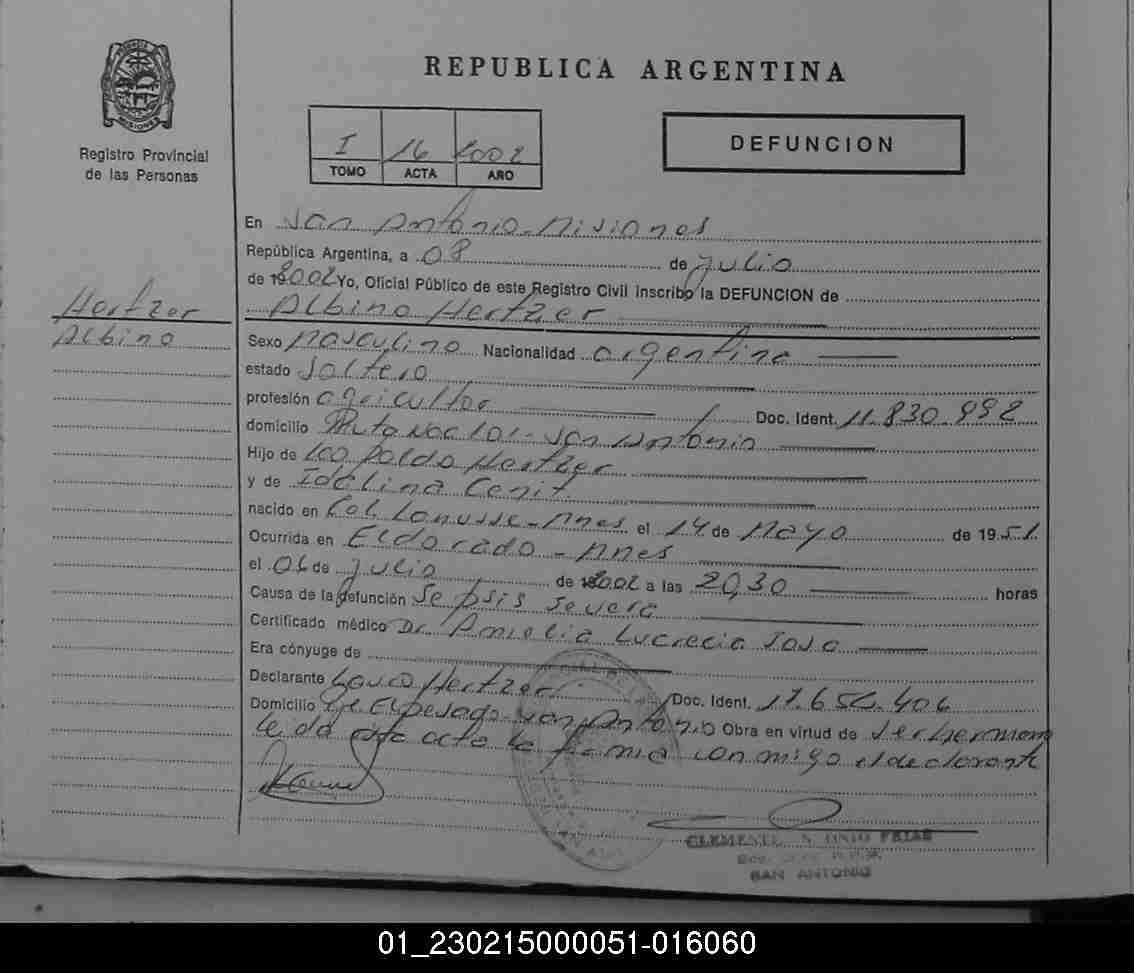 REPUBLICA ARGENTINA
Registro Provincial
de las Personas
I 16 2002
TOMO ACTA AÑO
DEFUNCION
Hertzer
Albino
En San Antonio - Misiones
República Argentina, a 08 de julio
de 192002 Yo, Oficial Público de este Registro Civil inscribo la DEFUNCION de
Albino Hertzer
Sexo masculino Nacionalidad argentina
estado soltero
profesión agricultor Doc. Ident. 11.830.992
domicilio San Antonio
Hijo de Leopoldo Hertzer
y de Idelina Cenit.
nacido en Col. Lanusse - Mnes el 14 de Mayo de 1951.
Ocurrida en Eldorado - Mnes
el 06 de julio de 2002 a las 20,30 horas
Causa de la defunción Sepsis severa
Certificado médico Dr. Amelia Lucrecia Sosa
Era cónyuge de
Declarante Hertzer Doc. Ident. 17.656.406
Domicilio San Antonio Obra en virtud de ser hermano
leida esta acta la firma conmigo el declarante
CLEMENTE FRIAS
SAN ANTONIO
01_230215000051-016060